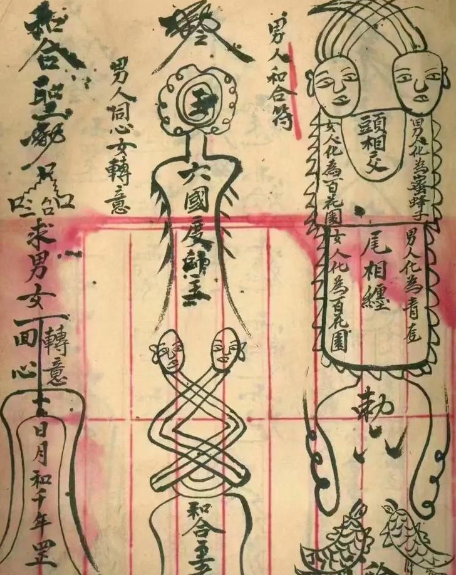 男人和合符
頭相交
男人化為蜜蜂子
女人化為百花園
尾相纏
男人化為青
女人化為百花園
勅
男人同心女轉意
六國度師主
和合
和合
求男女
轉意
回心
日月和千年罡